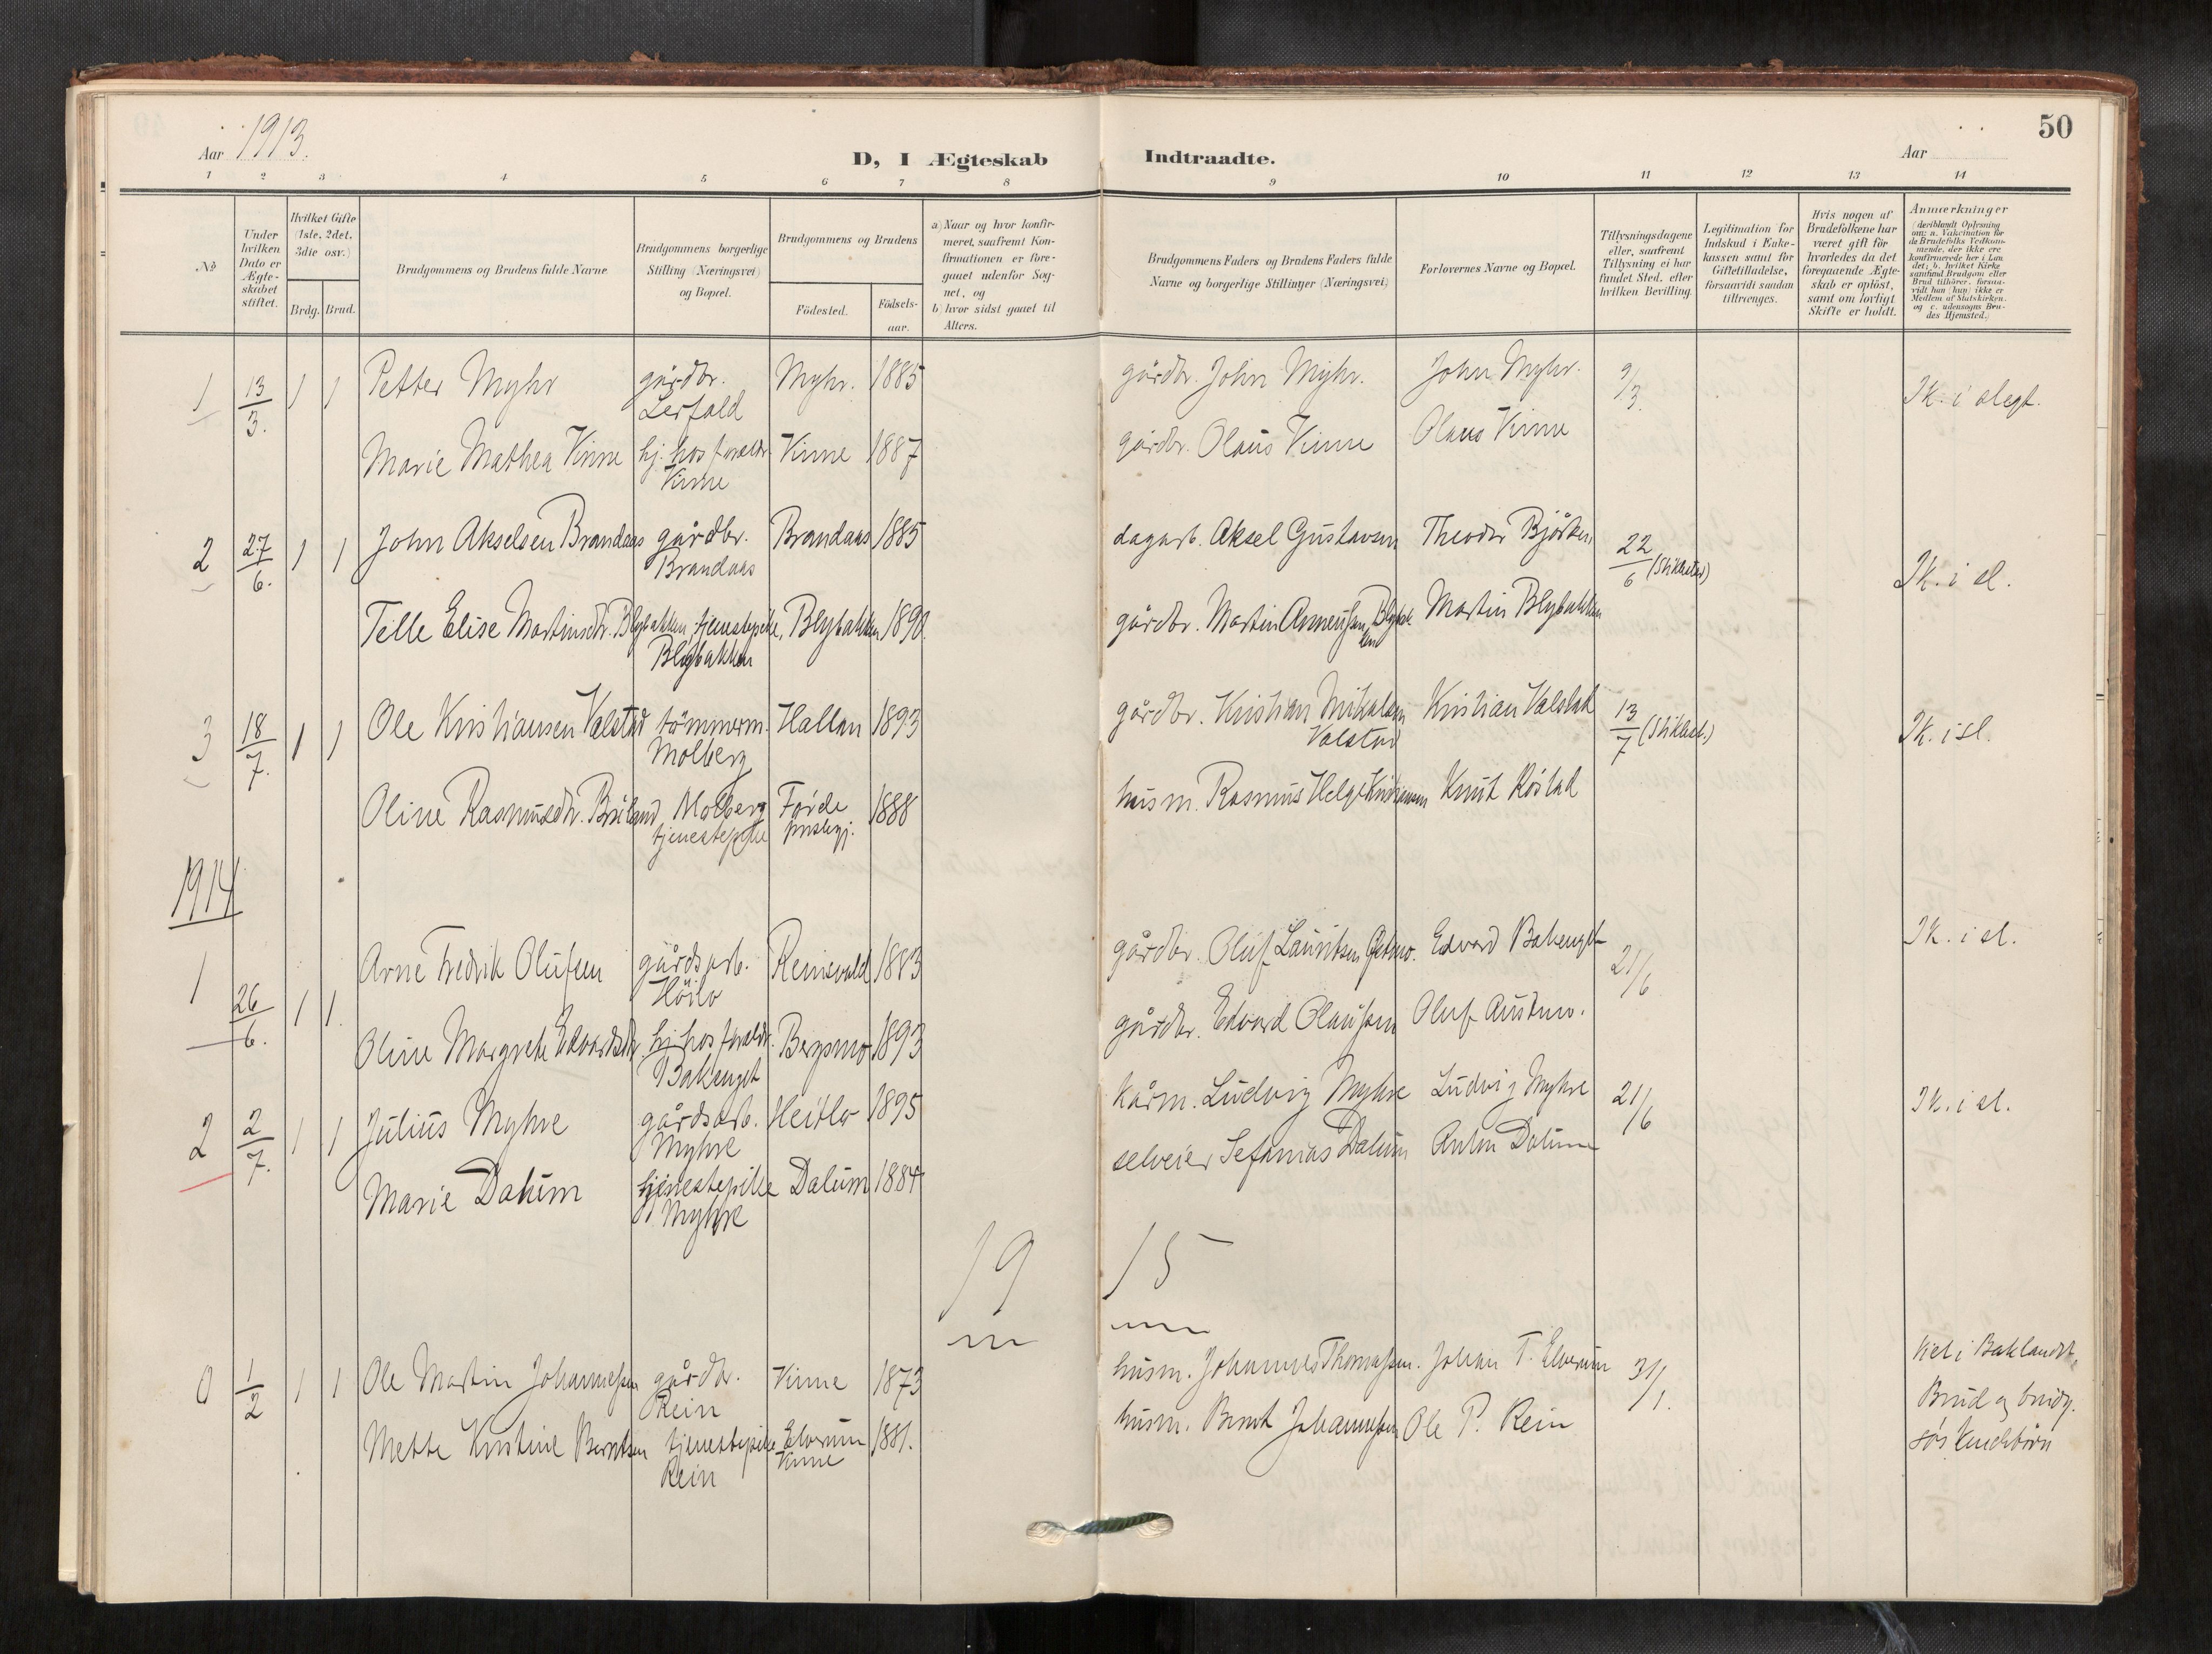 Aar 1913.
D, I Ægteskab Indtraadte.
Aar
50
1 2 3 4 5 6 7 8 9 10 11 12 13 14
No
Under hvilken Dato er Ægte-skabet stiftet.
Hvilket Gifte (1ste, 2det, 3die osv.)
Brdg. Brud.
Brudgommens og Brudens fulde Navne
Brudgommens borgerlige Stilling (Næringsvei) og Bopæl.
Brudgommens og Brudens
Födested.
Födsels-aar.
a) Naar og hvor konfir-meret, saafremt Kon-firmationen er fore-gaaet udenfor Sog-net, og
b) hvor sidst gaaet til Alters.
Brudgommens Faders og Brudens Faders fulde Navne og borgerlige Stillinger (Næringsvei)
Forlovernes Navne og Bopæl.
Tillysningsdagene eller, saafremt Tillysning ei har fundet Sted, efter hvilken Bevilling.
Legitimation for Indskud i Enke-kassen samt for Giftetilladelse, forsaavidt saadan tiltrænges.
Hvis nogen af Brudefolkene har været gift før hvorledes da det foregaaende Ægte-skab er oplöst, samt om lovligt Skifte er holdt.
Anmærkninger (deriblandt Oplysning om: a. Vakcination for de Brudefolks Vedkom-mende, der ikke ere konfirmerede her i Lan-det; b. hvilket Kirke-samfund Brudgom eller Brud tilhører, forsaa-vidt han (hun) ikke er Medlem af Statskirken. og c. udensogns Bru-des Hjemsted.)
1 13/3. 1 1 Petter Myhr gårdbr. Myhr. 1885 gårdbr. John Myhr. John Myhr. 9/3. Ik. i slegt.
Lerfald
Marie Mathea Kinne hj. hos foreldr. Kinne 1887 gårdbr. Olaus Kinne Olaus Kinne
Kinne
2 27/6. 1 1 John Akselsen Brandaas gårdbr. Brandaas 1885 dagarb. Aksel Gustavsen Theodor Björken 22/6 (Stiklestad) Ik. i sl.
Brandaas
Tille Elise Martinsdr. Blybakken, tjenestepike, Blybakken 1890. gårdbr. Martin Blybakken Martin Blybakken
Blybakken
3 18/7. 1 1 Ole Kristiansen Valstad tömmerm. Hallan 1893 gårdbr. Kristian Mikalsen Kristian Valstad 13/7 (Stiklest.) Ik. i sl.
Molberg Valstad
Oline Rasmusdr. Molberg Förde 1888 husm. Rasmus Helge Kristiansen Knut Röstad
tjenestepike prestegj.
1914
1 26/6. 1 1. Arne Fredrik Olufsen gårdsarb. Reinsvald 1883 gårdbr. Oluf Lauritsen Edvard Bakenget 21/6 Ik. i sl.
Höilo
Oline Margrete Edvardsdtr. hj. hos foreldr. Bergsmo 1893 gårdbr. Edvard Olausen Oluf Austmo.
Bakenget
2 2/7. 1 1 Julius Myhre gårdsarb. Heitlo 1895 kårm. Ludvig Myhre Ludvig Myhre 21/6 Ik. i sl.
Myhre
Marie Dalum tjenestepike Dalum 1884 selveier Sefanias Dalum Anton Dalum
Myhre
19 15
0 1/2 1 1 Ole Martin Johannessen gårdbr. Kinne 1873 husm. Johannes Thomassen. Johan T. Elverum 31/1. Viet i Baklandet.
Rein Brud og brudg.
Mette Kristine Berntsen tjenestepike Elverum 1881. husm. Bernt Johannessen Ole P. Rein söskendebörn
Rein Kinne